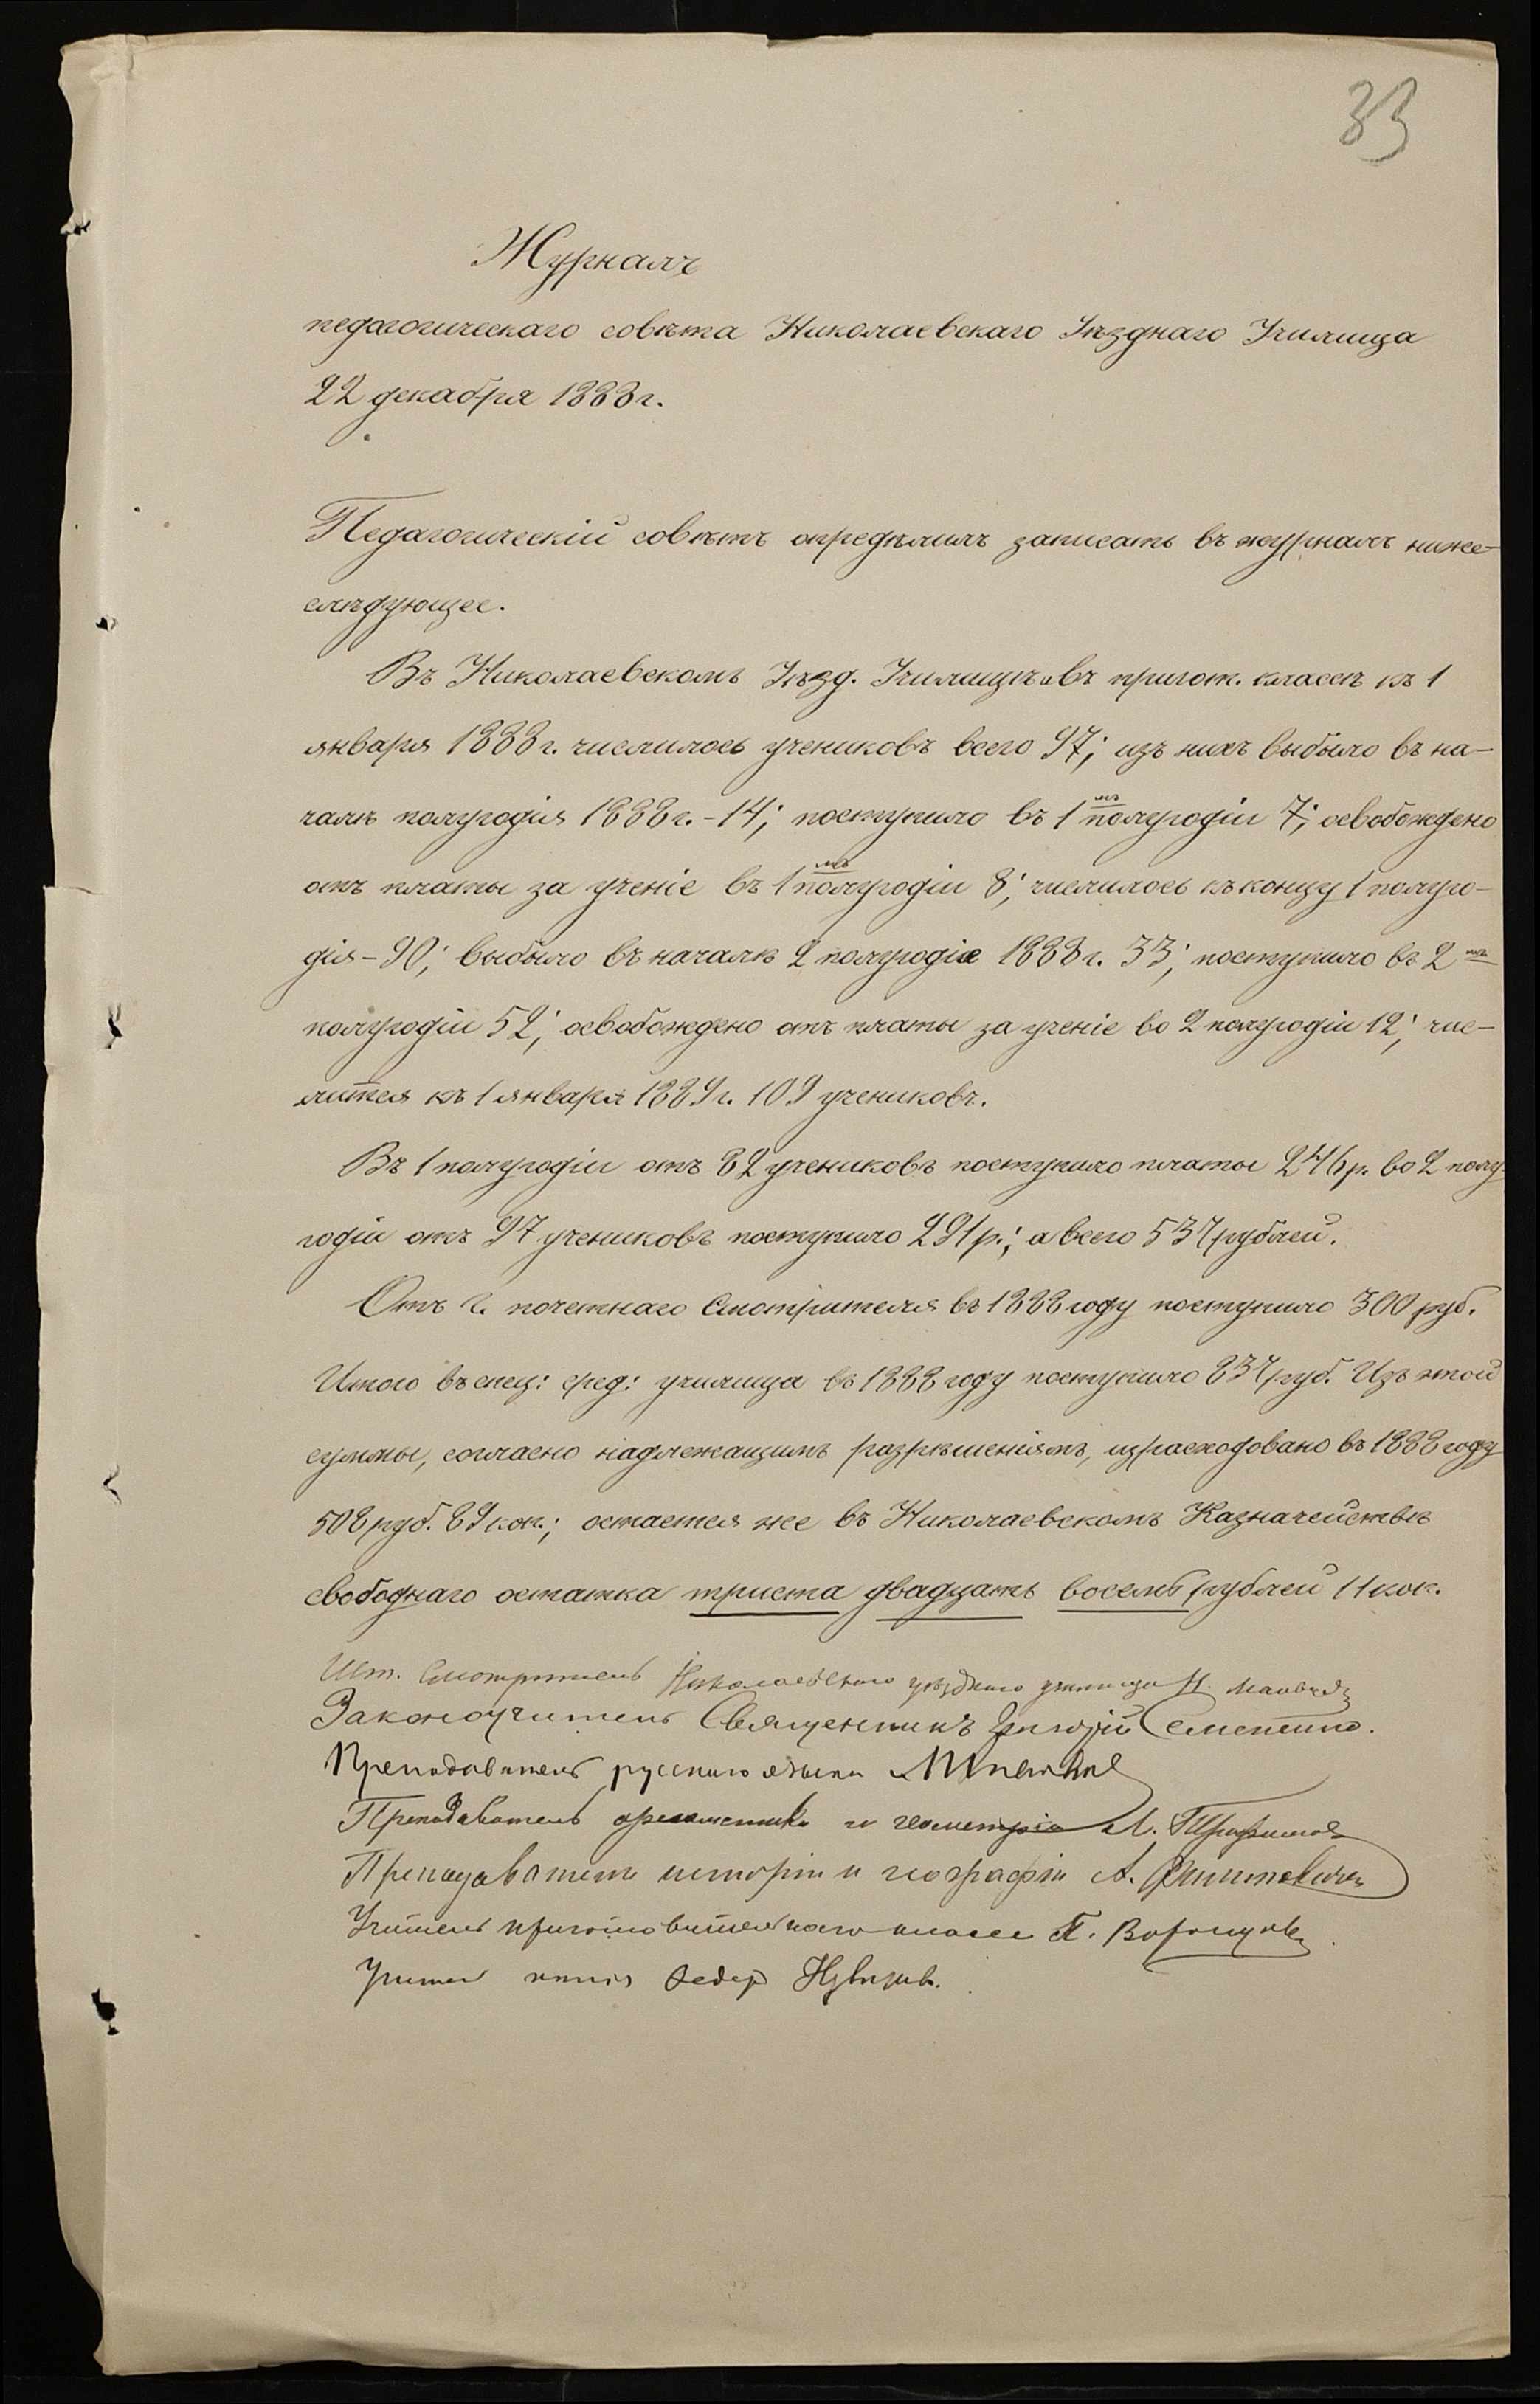 33
Журналъ
педагогическаго совѣта Николаевскаго Уѣзднаго Училища
22 декабря 1888 г.
Педагогическій совѣтъ опредѣлилъ записать въ журналъ ниже-
слѣдующее.
Въ Николаевскомъ Уѣзд. Училищѣ и въ пригот. классѣ къ 1
января 1888 г. числилось учениковъ всего 97; изъ нихъ выбыло въ на-
чалѣ полугодія 1888 г. - 14; поступило въ 1мъ полугодіи 7; освобождено
отъ платы за ученіе въ 1мъ полугодіи 8; числилось къ концу 1 полуго-
дія - 90; выбыло въ началѣ 2 полугодія 1888 г. 33; поступило въ 2мъ
полугодіи 52; освобождено отъ платы за ученіе во 2 полугодіи 12; чис-
лится къ 1 января 1889 г. 109 учениковъ.
Въ 1 полугодіи отъ 82 учениковъ поступило платы 246 р. во 2 полу-
годіи отъ 97 учениковъ поступило 291 р.; а всего 537 рублей.
Отъ г. почетнаго Смотрителя въ 1888 году поступило 300 руб.
Итого въ спец: сред: училища въ 1888 году поступило 837 руб. Изъ этой
суммы, согласно надлежащимъ разрѣшеніямъ, израсходовано въ 1888 году
508 руб. 89 коп.; остается же въ Николаевскомъ Казначействѣ
свободнаго остатка триста двадцать восемь рублей 11 коп.
Шт. Смотритель Николаевскаго уѣзднаго училища Н.
Законоучитель Священникъ Григорій
Преподаватель русскаго языка
Преподаватель ариѳметики и геометріи Л. Трофимовъ
Преподаватель исторіи и географіи А.
Учитель приготовительнаго класса П.
Учитель пѣнія Федоръ